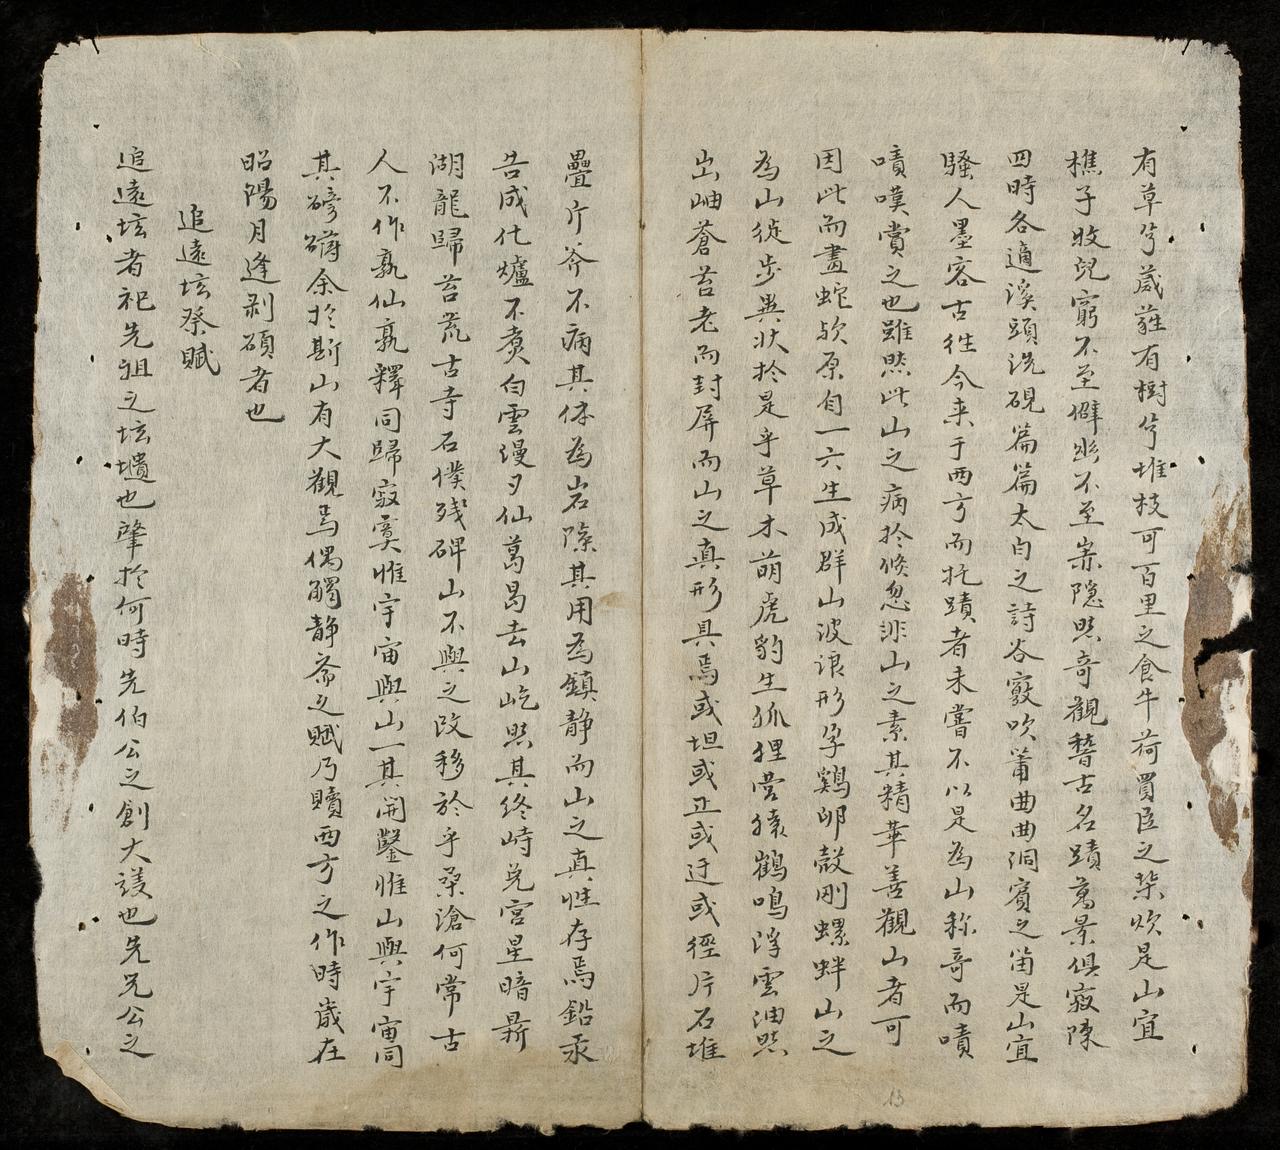 有草兮葳蕤有樹兮堆枝可百里之食牛荷買臣之柴炊是山宜
樵子牧兒窮不至僻幽不至崇隱然奇觀稽古名蹟萬景俱寂陳
四時各適溪頭洗硯篇篇太白之詩谷竅吹簫曲曲洞賓之笛是山宜
騷人墨客古往今来于西方而托蹟者未嘗不以是為山称奇而嘖
嘖嘆賞之也雖然此山之病扵倐忽非山之素其精華善觀山者可
因此而畫蛇欤原自一六生成群山波浪形孕鷄卵殼剛螺蚌山之
為山徙步異状扵是乎草木萌虎豹生狐狸嘗猿鶴鳴浮雲油然
出岫蒼苔老而封屏而山之真形具焉或坦或正或迂或徑片石堆
疊片斧不病其体為岩隊其用為鎮静而山之真性存焉鉛汞
告成化爐不煑白雲漫夕仙葛曷去山屹然其终峙兑宮星暗鼎
湖龍歸苔荒古寺石僕殘碑山不與之改移於乎桑滄何常古
人不作孰仙孰釋同歸寂寞惟宇宙與山一其開鑿惟山與宇宙同
其磅礴余扵斯山有大觀焉偶觸静斋之賦乃賡西方之作時歲在
昭陽月逢剥碩者也
追遠坛祭賦
追遠坛者祀先祖之坛壝也肇扵何時先伯公之創大謨也先兄公之
13